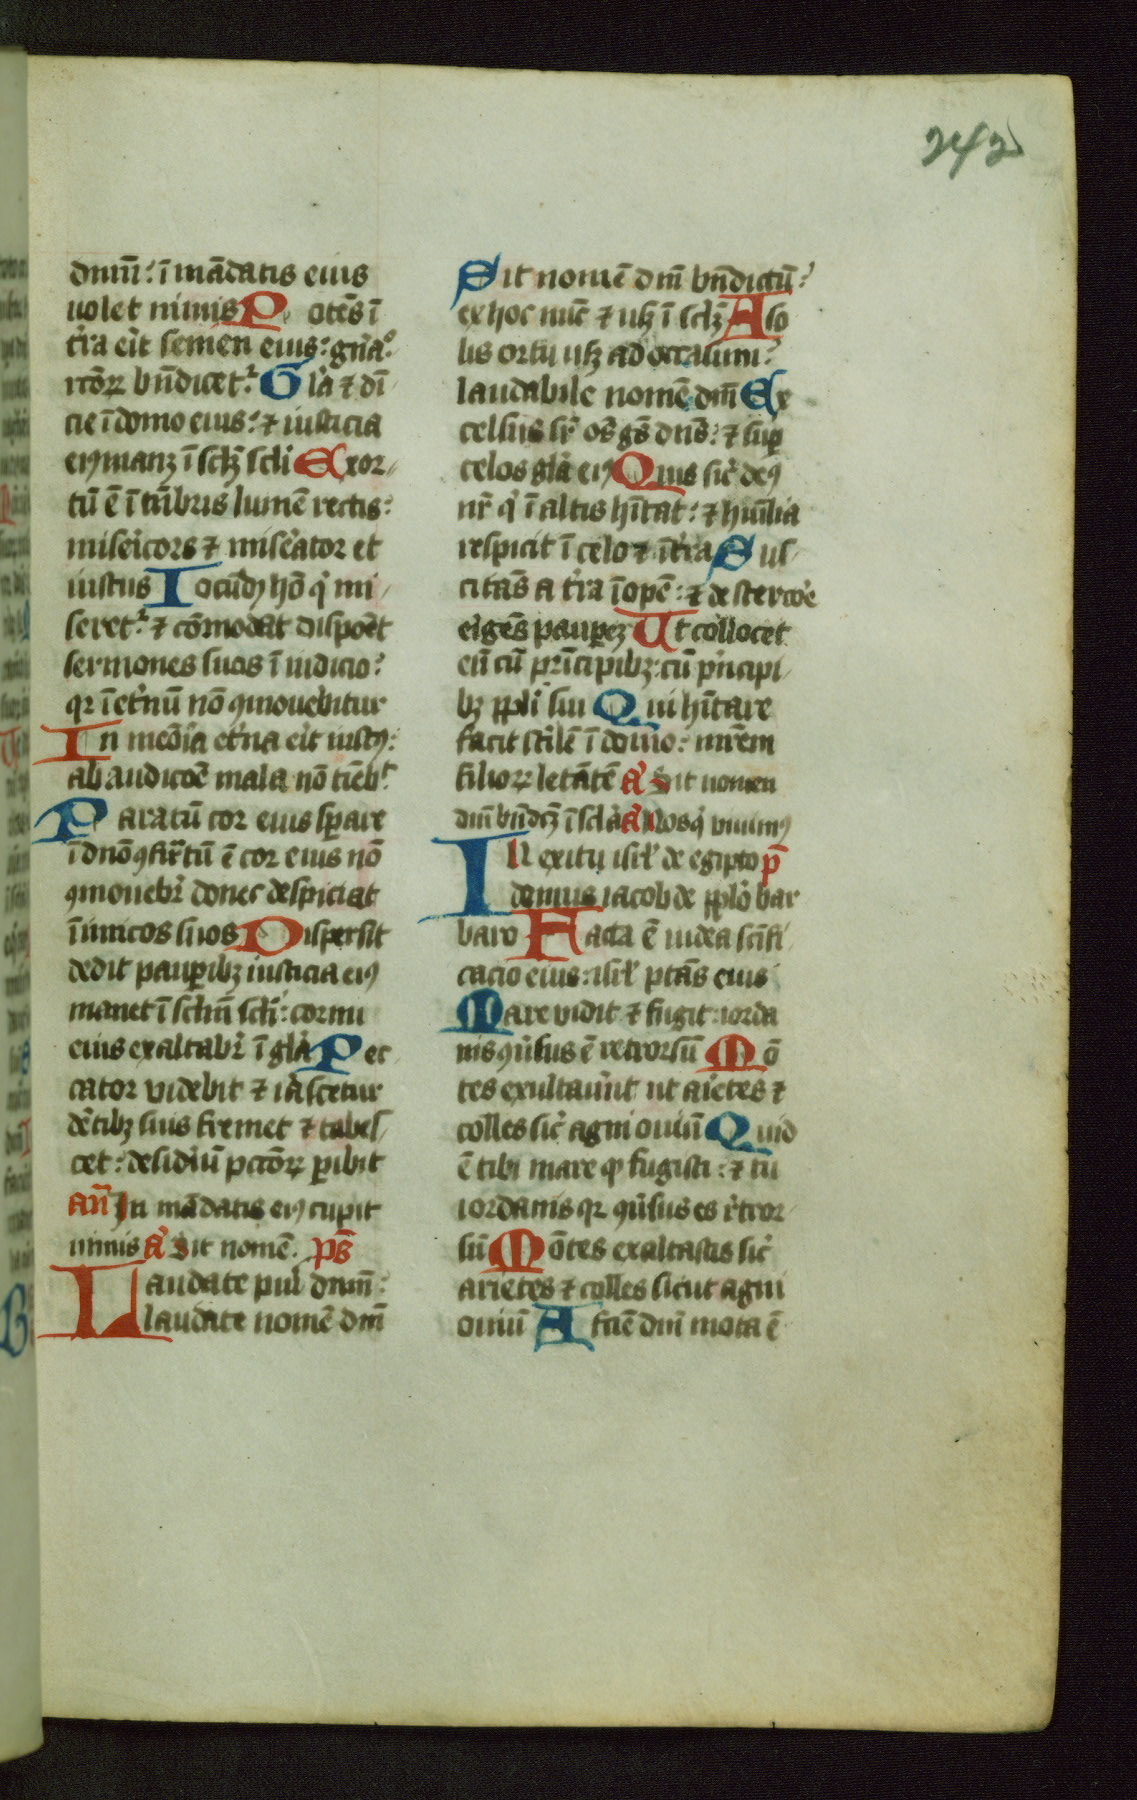 242
dnm̄: ī mādatis eius
uolet nimis Potēs ī
t'ra er̄it semen eius: gn̄a°
rcōꝝ bn̄dicet᷑ Gl'a ⁊ di
cie ī domo eius: ⁊ iusticia
eiꝰ manꝫ ī sclꝫ scli Exor
tū ē ī tn̄bris lumē rectis:
mise͛icors ⁊ mise͛ator et
iustus Iocūdꝰ hō q̇ mi
seret᷑ ⁊ cōmodat dispōet
sermones suos ī iudicio:
qꝛ ī et͛nū nō ꝯmouebitur
In mēoia et͛na er̄it iustꝰ:
ab audicōe mala nō tīeb᷑
Paratū cor eius sꝑare
ī dnō ꝯfir̄tū ē cor eius nō
ꝯmouebr̄ donec despiciat
īimicos suos Dispersit
dedit pauꝑibꝫ iusticia eiꝰ
manet ī sclm̄ scl'i: cornu
eius exaltabr̄ ī gl'a Pec
cator videbit ⁊ irascetur
dētibꝫ suis fremet ⁊ tabes
cet: desideriū pctōꝝ ꝑibit
an̄ In mādatis eiꝰ cupit
nimis a͛ Sit nomē. ps̄
Laudate pu'i dnm̄:
laudate nomē dn̄i
Sit nomē dn̄i bn̄dictū:
ex hoc nūc ⁊ usqꝫ ī sclꝫ A so
lis ortu usqꝫ ad occasum:
laudabile nomē dn̄i Ex
celsus sr̄ oēs gēs dn̄s: ⁊ suꝑ
celos gl'a eiꝰ Quis sic͛ deꝰ
nr̄ q̇ ī altis hītat: ⁊ hūilia
respicit ī celo ⁊ ī t͛ra Sus
citās a t͛ra īopē: ⁊ de stercor͛e
eigēs pauꝑeꝫ Ut collocet
eū cū prīcipibꝫ: cū pn̄cipi
bꝫ ppl'i sui Qui hītare
facit st͛ilē ī domo: mr̄em
filioꝝ letātē a͛ Sit nomen
dn̄i bn̄dcꝫ ī scl'a a͛ Nos q̇ viuimꝰ
IN exitu isrl' de egipto p̄
domus iacob de pplō bar
baro Facta ē iudea scīfi
cacio eius: isrl' ptās eius
Mare vidit ⁊ fugit: iorda
nis ꝯu͛sus ē retrorsū Mō
tes exultauer̄nt ut arietes ⁊
colles sic͛ agni ouiū Quid
ē tibi mare ꝙ fugisti: ⁊ tu
iordanis qꝛ ꝯu͛sus es r͛tror
sū Mōtes exaltastis sic͛
arietes ⁊ colles sicut agni
ouiū A facie dn̄i mota ē